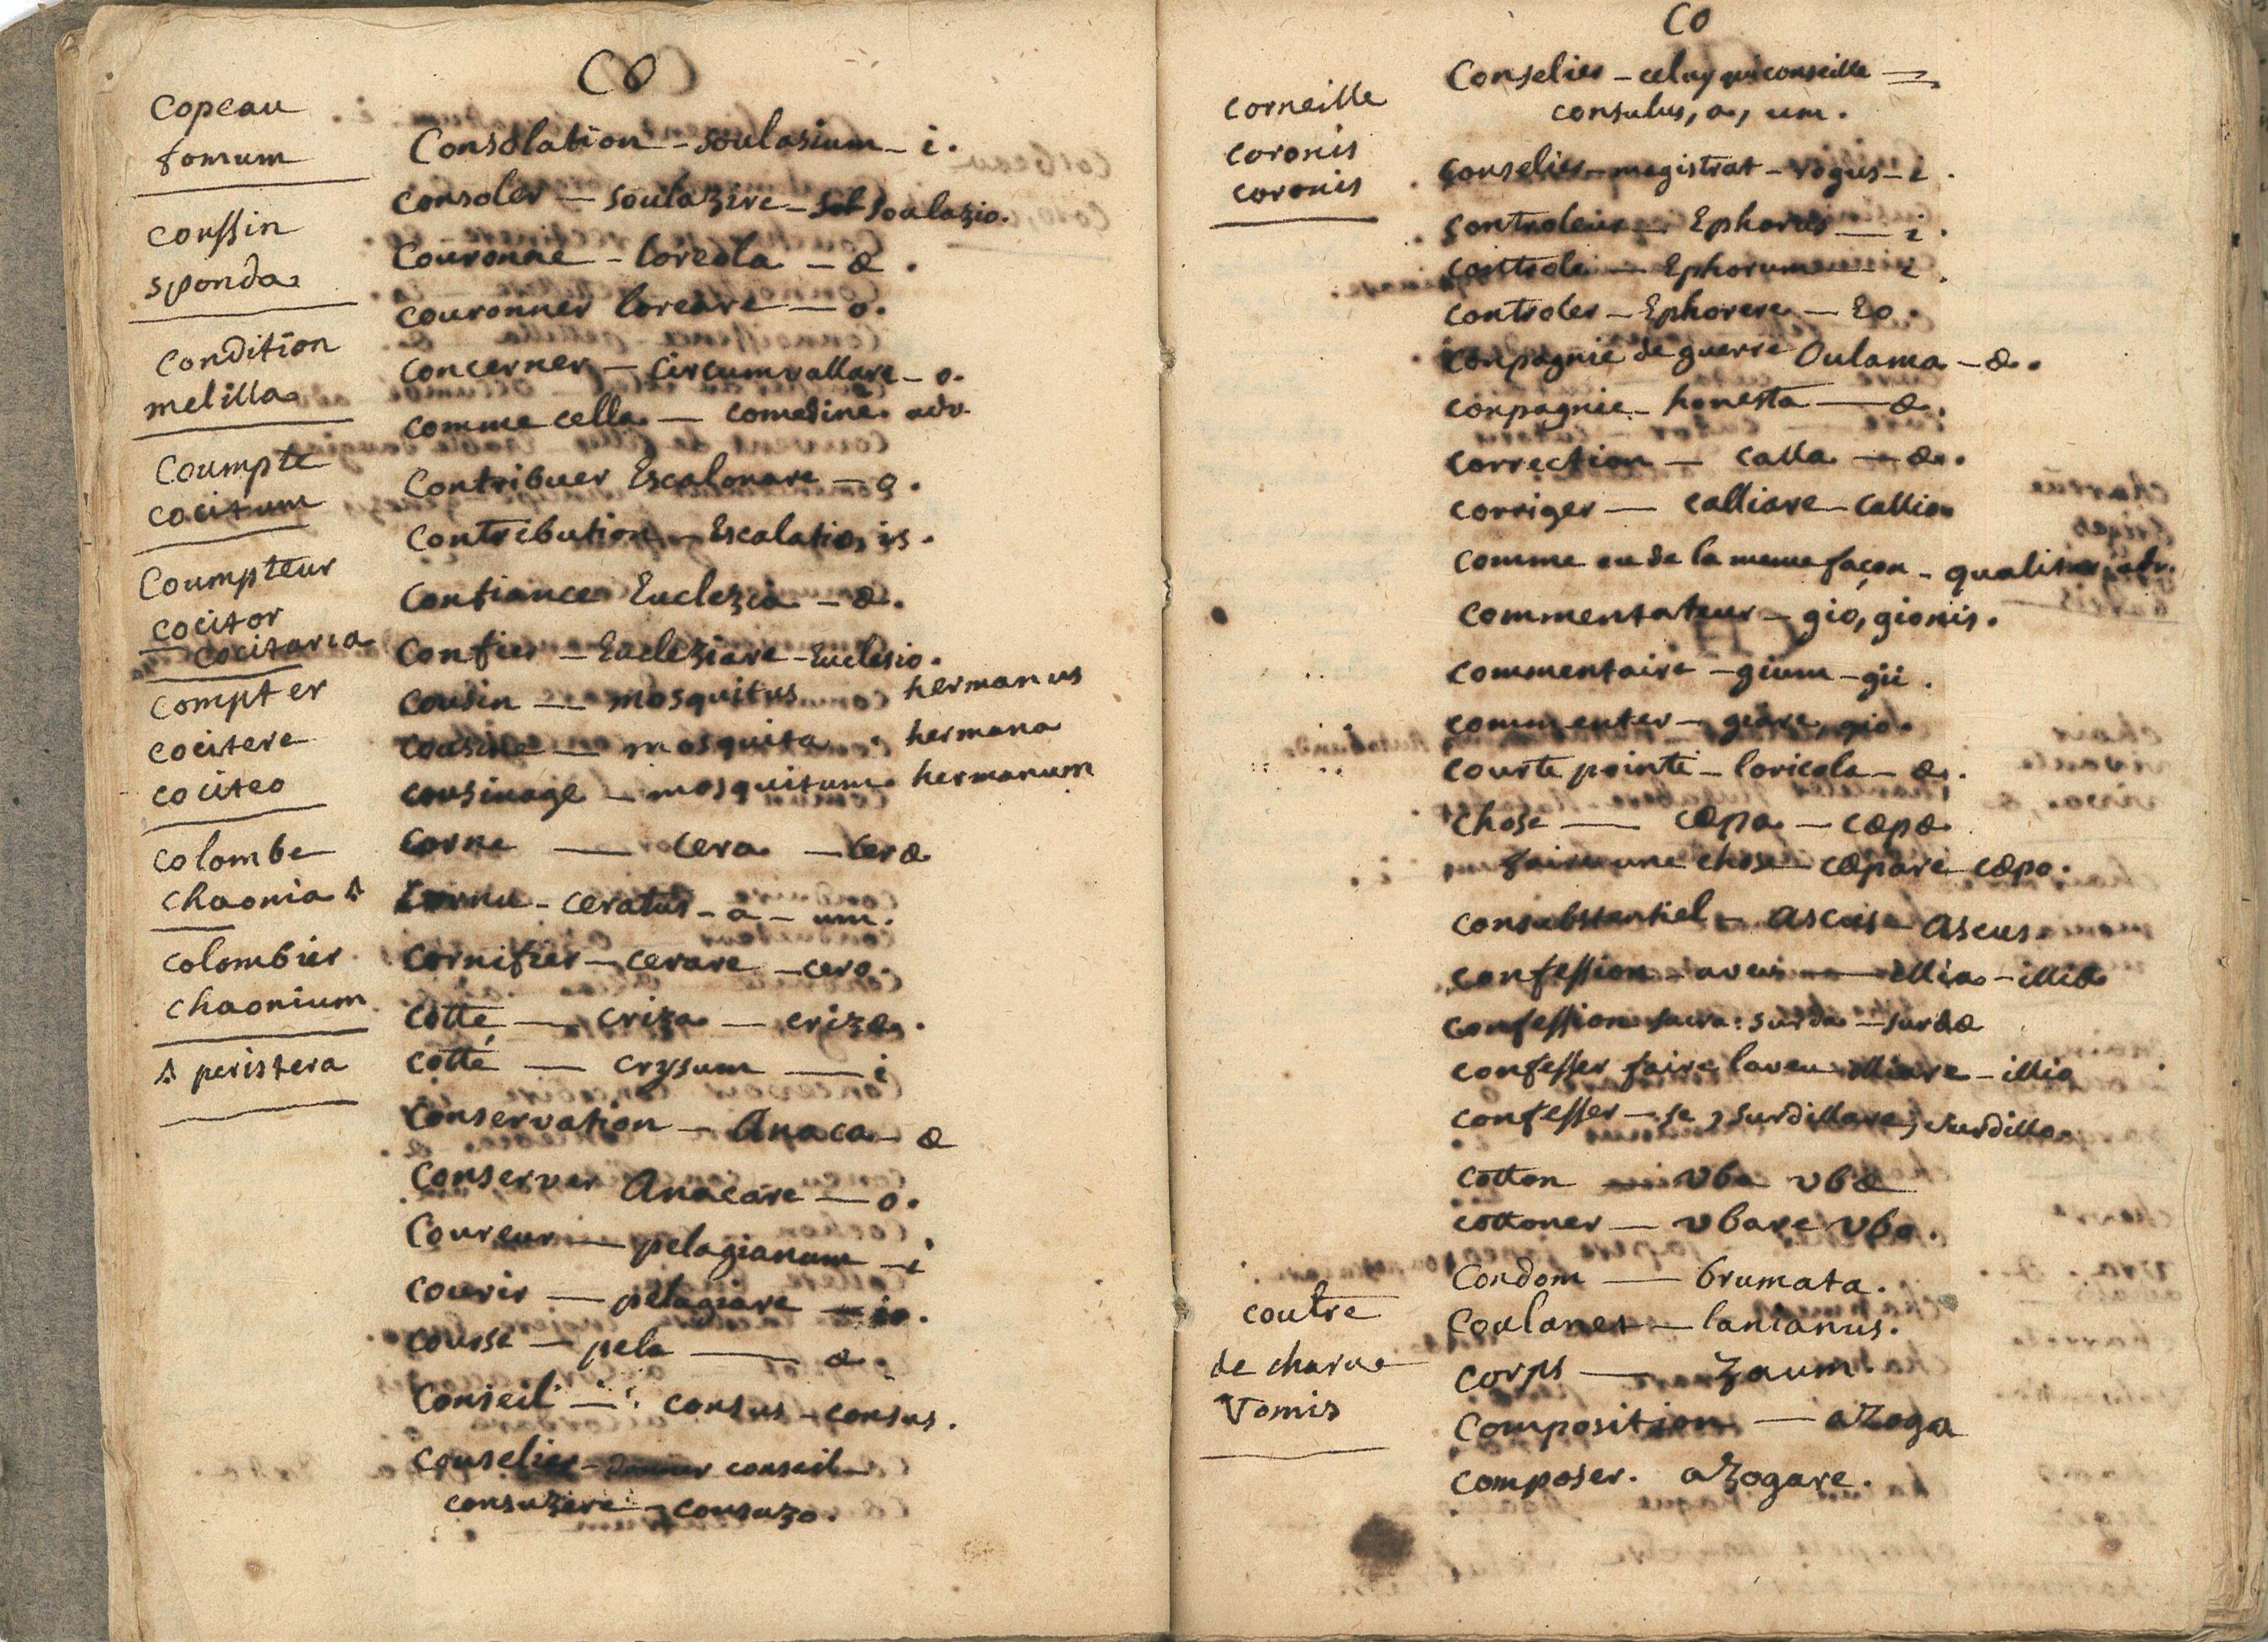 CO
Copeau
fomum
coussin
sponda
Condition
melilla
Coumpte
cocitum
Coumpteur
cocitor
cocitaria
compter
cocitere
cociteo
colombe
chaonia
colombier
chaonium
peristera
Consolation - soulasium - i.
consoler - soulazire - soulazio.
Couronne - loreola - æ.
couronner loreare - o.
concerner - circumvallare - o.
comme cella - comedine adv.
Contribuer Escalonare - o.
contribution - Escalatio, is.
confiance Euclezia - æ.
confier - Eucleziare - Euclesio.
cousin - mosquitus hermanus
cousine - mosquita hermana
cousinage - mosquitum hermanum
Corne - cera - ceræ
Cornu - ceratus - a - um.
Cornifier - cerare - cero.
cotte - criza - crizæ.
cotté - crysum - i
Conservation - Anaca - æ
Conserver Anacare - o.
Coureur - pelagianum - i
courir - pelagiare - io.
course - pela - æ.
Conseil - consus - consus.
Conselier - donner conseil
consuzere - consuzo.
CO
corneille
coronis
coronis
coutre
de charue
Vomis
Conselier - celuy qui conseille
consulus, a, um.
conselier - magistrat - rogus - i.
controleur - Ephorus - i.
controle - Ephorum - i.
controler - Ephorere - Eo.
conpagnie de guerre Oulama - æ.
conpagnie - honesta - æ.
correction - calla - æ.
corriger - calliare - callio
Comme ou de la meme façon - qualiter adv.
commentateur - gio, gionis.
commentaire - gium - gii.
commenter - giare, gio.
courte pointe - loricola - æ.
chose - cæpa - cæpæ
faire une chose - cæpare cæpo.
consubstantiel - ascus - Ascus
confession - aveu - illia - illiæ
confession sacra: surda - surdæ
confesser faire laveu illiare - illio
confesser - se, surdillare, surdillo.
cotton - vba vbæ
cottoner - vbare vbo.
Condom - brumata.
Coulanes - lanianus.
corps - Zaum.
Composition - aZoga
composer. aZogare.